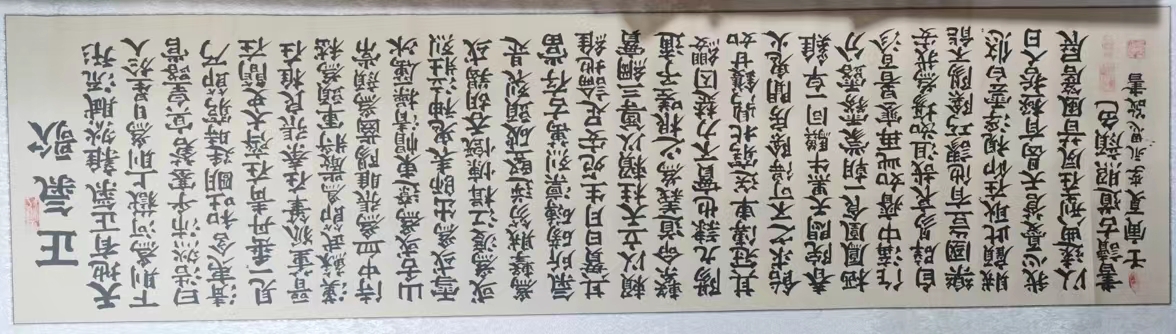 正氣歌
天地有正氣雜然賦流形
下則為河嶽上則為日星於人
曰浩然沛乎塞蒼冥皇路當
清夷含和吐明庭時窮節乃
見一一垂丹青在齊太史簡在
晉董狐筆在秦張良椎在
漢蘇武節為嚴將軍頭為嵇
侍中血為張睢陽齒為顏常
山舌或為遼東帽清操厲冰
雪或為出師表鬼神泣壯烈
或為渡江楫慷慨吞胡羯或
為擊賊笏逆豎破頭裂是
氣所磅礴凜烈萬古存當
其貫日月生死安足論地維
賴以立天柱賴以尊三綱實
繫命道義為之根嗟予遘
陽九隸也實不力楚囚纓
其冠傳車送窮北鼎鑊甘如
飴求之不可得陰房闃鬼火
春院閟天黑牛驥同一皁雞
棲鳳凰食一朝蒙霧露分
作溝中瘠如此再寒暑百沴
自辟易哀哉沮洳場為我安
樂國豈有他謬巧陰陽不能
賊顧此耿耿在仰視浮雲白悠
我心憂蒼天曷有極哲人日
以遠典型在夙昔風簷展
書讀古道照顏色
壬寅夏李書